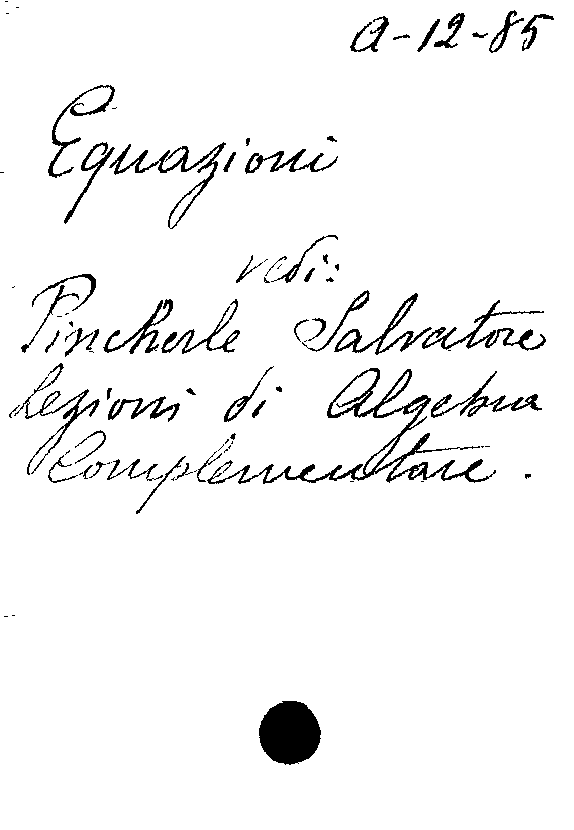 A-12-85
Equazioni
vedi:
Pincherle Salvatore
Lezioni di Algebra
Complementare.